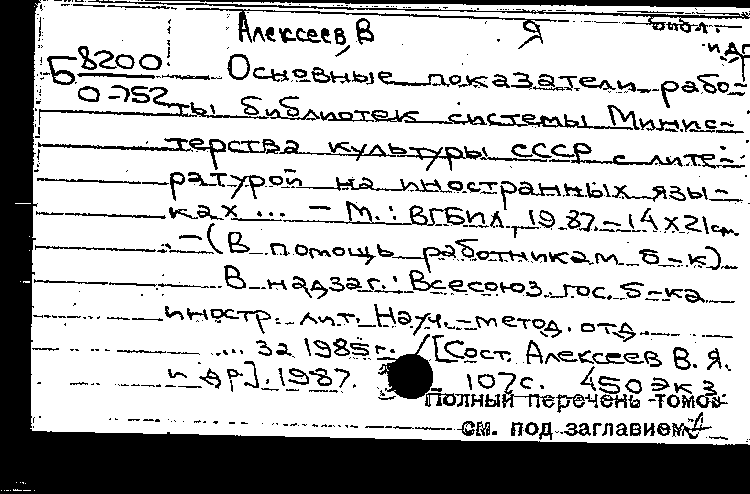 Алексеев, В Я допол.
и др
Б 8200
0-752
Основные показатели рабо-
ты библиотек системы Минис-
терства культуры СССР с лите-
ратурой на иностранных язы-
ках ... – М.: ВГБИЛ, 1987.–14х21см.
.–(В помощь работникам б-к).
В надзаг.: Всесоюз. гос. б-ка
иностр. лит. Науч.-метод. отд.
... за 1985г. /[Сост. Алексеев В. Я.
и др]. 1987. 107с. 450 экз
Полный перечень томов
см. под заглавием